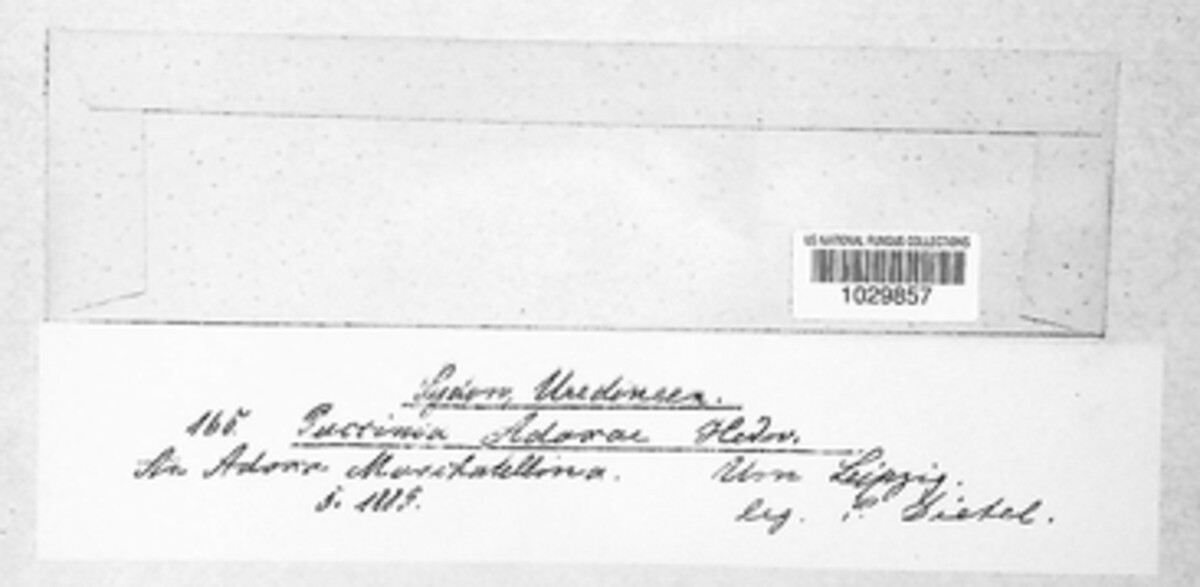 US NATIONAL FUNGUS COLLECTIONS
1029857
Sydow, Uredineen.
165. Puccinia Adoxae Hedw.
An Adoxa Moschatellina. Um Leipzig.
5. 1889. leg. P. Dietel.